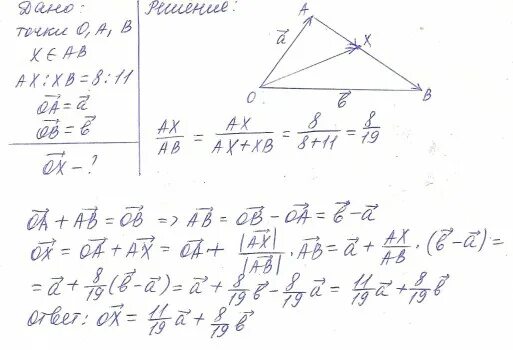 Дано:
точки O, A, B
X ∈ AB
AX : XB = 8 : 11
\vec{OA} = \vec{a}
\vec{OB} = \vec{b}
\vec{OX} - ?
Решение:
A
X
\vec{a}
O
\vec{b}
B
AX/AB = AX/(AX+XB) = 8/(8+11) = 8/19
\vec{OA} + \vec{AB} = \vec{OB} => \vec{AB} = \vec{OB} - \vec{OA} = \vec{b} - \vec{a}
\vec{OX} = \vec{OA} + \vec{AX} = \vec{OA} + |\vec{AX}|/|\vec{AB}| · \vec{AB} = \vec{a} + AX/AB · (\vec{b} - \vec{a}) =
= \vec{a} + 8/19 (\vec{b} - \vec{a}) = \vec{a} + 8/19 \vec{b} - 8/19 \vec{a} = 11/19 \vec{a} + 8/19 \vec{b}
ответ: \vec{OX} = 11/19 \vec{a} + 8/19 \vec{b}